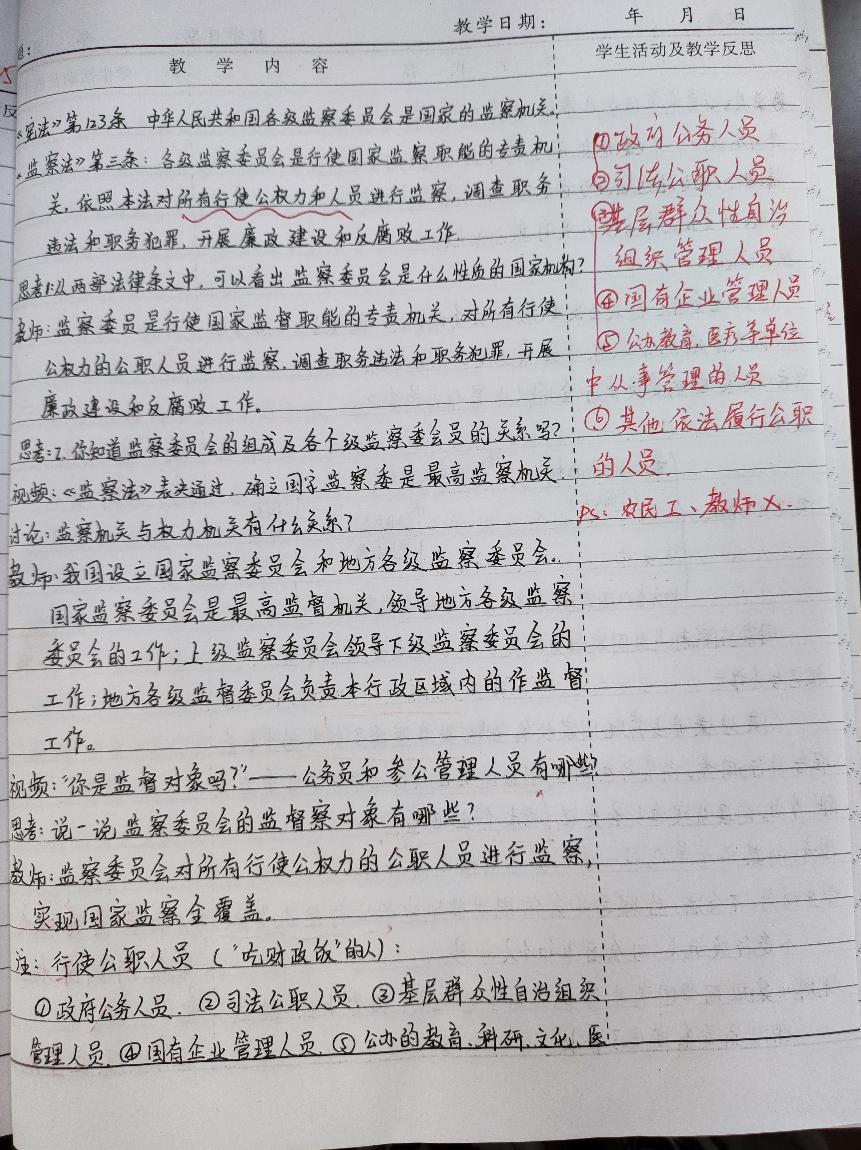 教学日期： 年 月 日
教 学 内 容
学生活动及教学反思
《宪法》第123条 中华人民共和国各级监察委员会是国家的监察机关。
《监察法》第三条：各级监察委员会是行使国家监察职能的专责机
关，依照本法对所有行使公权力和人员进行监察，调查职务
违法和职务犯罪，开展廉政建设和反腐败工作.
思考1:从两部法律条文中，可以看出监察委员会是什么性质的国家机构？
教师：监察委员是行使国家监督职能的专责机关，对所有行使
公权力的公职人员进行监察，调查职务违法和职务犯罪，开展
廉政建设和反腐败工作。
思考:2.你知道监察委员会的组成及各个级监察委会员的关系吗？
视频：《监察法》表决通过，确立国家监察委是最高监察机关.
讨论：监察机关与权力机关有什么关系？
教师：我国设立国家监察委员会和地方各级监察委员会。
国家监察委员会是最高监督机关，领导地方各级监察
委员会的工作；上级监察委员会领导下级监察委员会的
工作；地方各级监督委员会负责本行政区域内的作监督
工作。
视频：“你是监督对象吗？”——公务员和参公管理人员有哪些？
思考：说一说监察委员会的监督察对象有哪些？
教师：监察委员会对所有行使公权力的公职人员进行监察，
实现国家监察全覆盖。
注：行使公职人员（“吃财政饭”的人）：
①政府公务人员. ②司法公职人员. ③基层群众性自治组织
管理人员. ④国有企业管理人员. ⑤公办的教育、科研、文化、医
①政府公务人员
②司法公职人员
③基层群众性自治
组织管理人员
④国有企业管理人员
⑤公办教育、医疗等单位
中从事管理的人员
⑥其他依法履行公职
的人员.
ps：农民工、教师 ×.